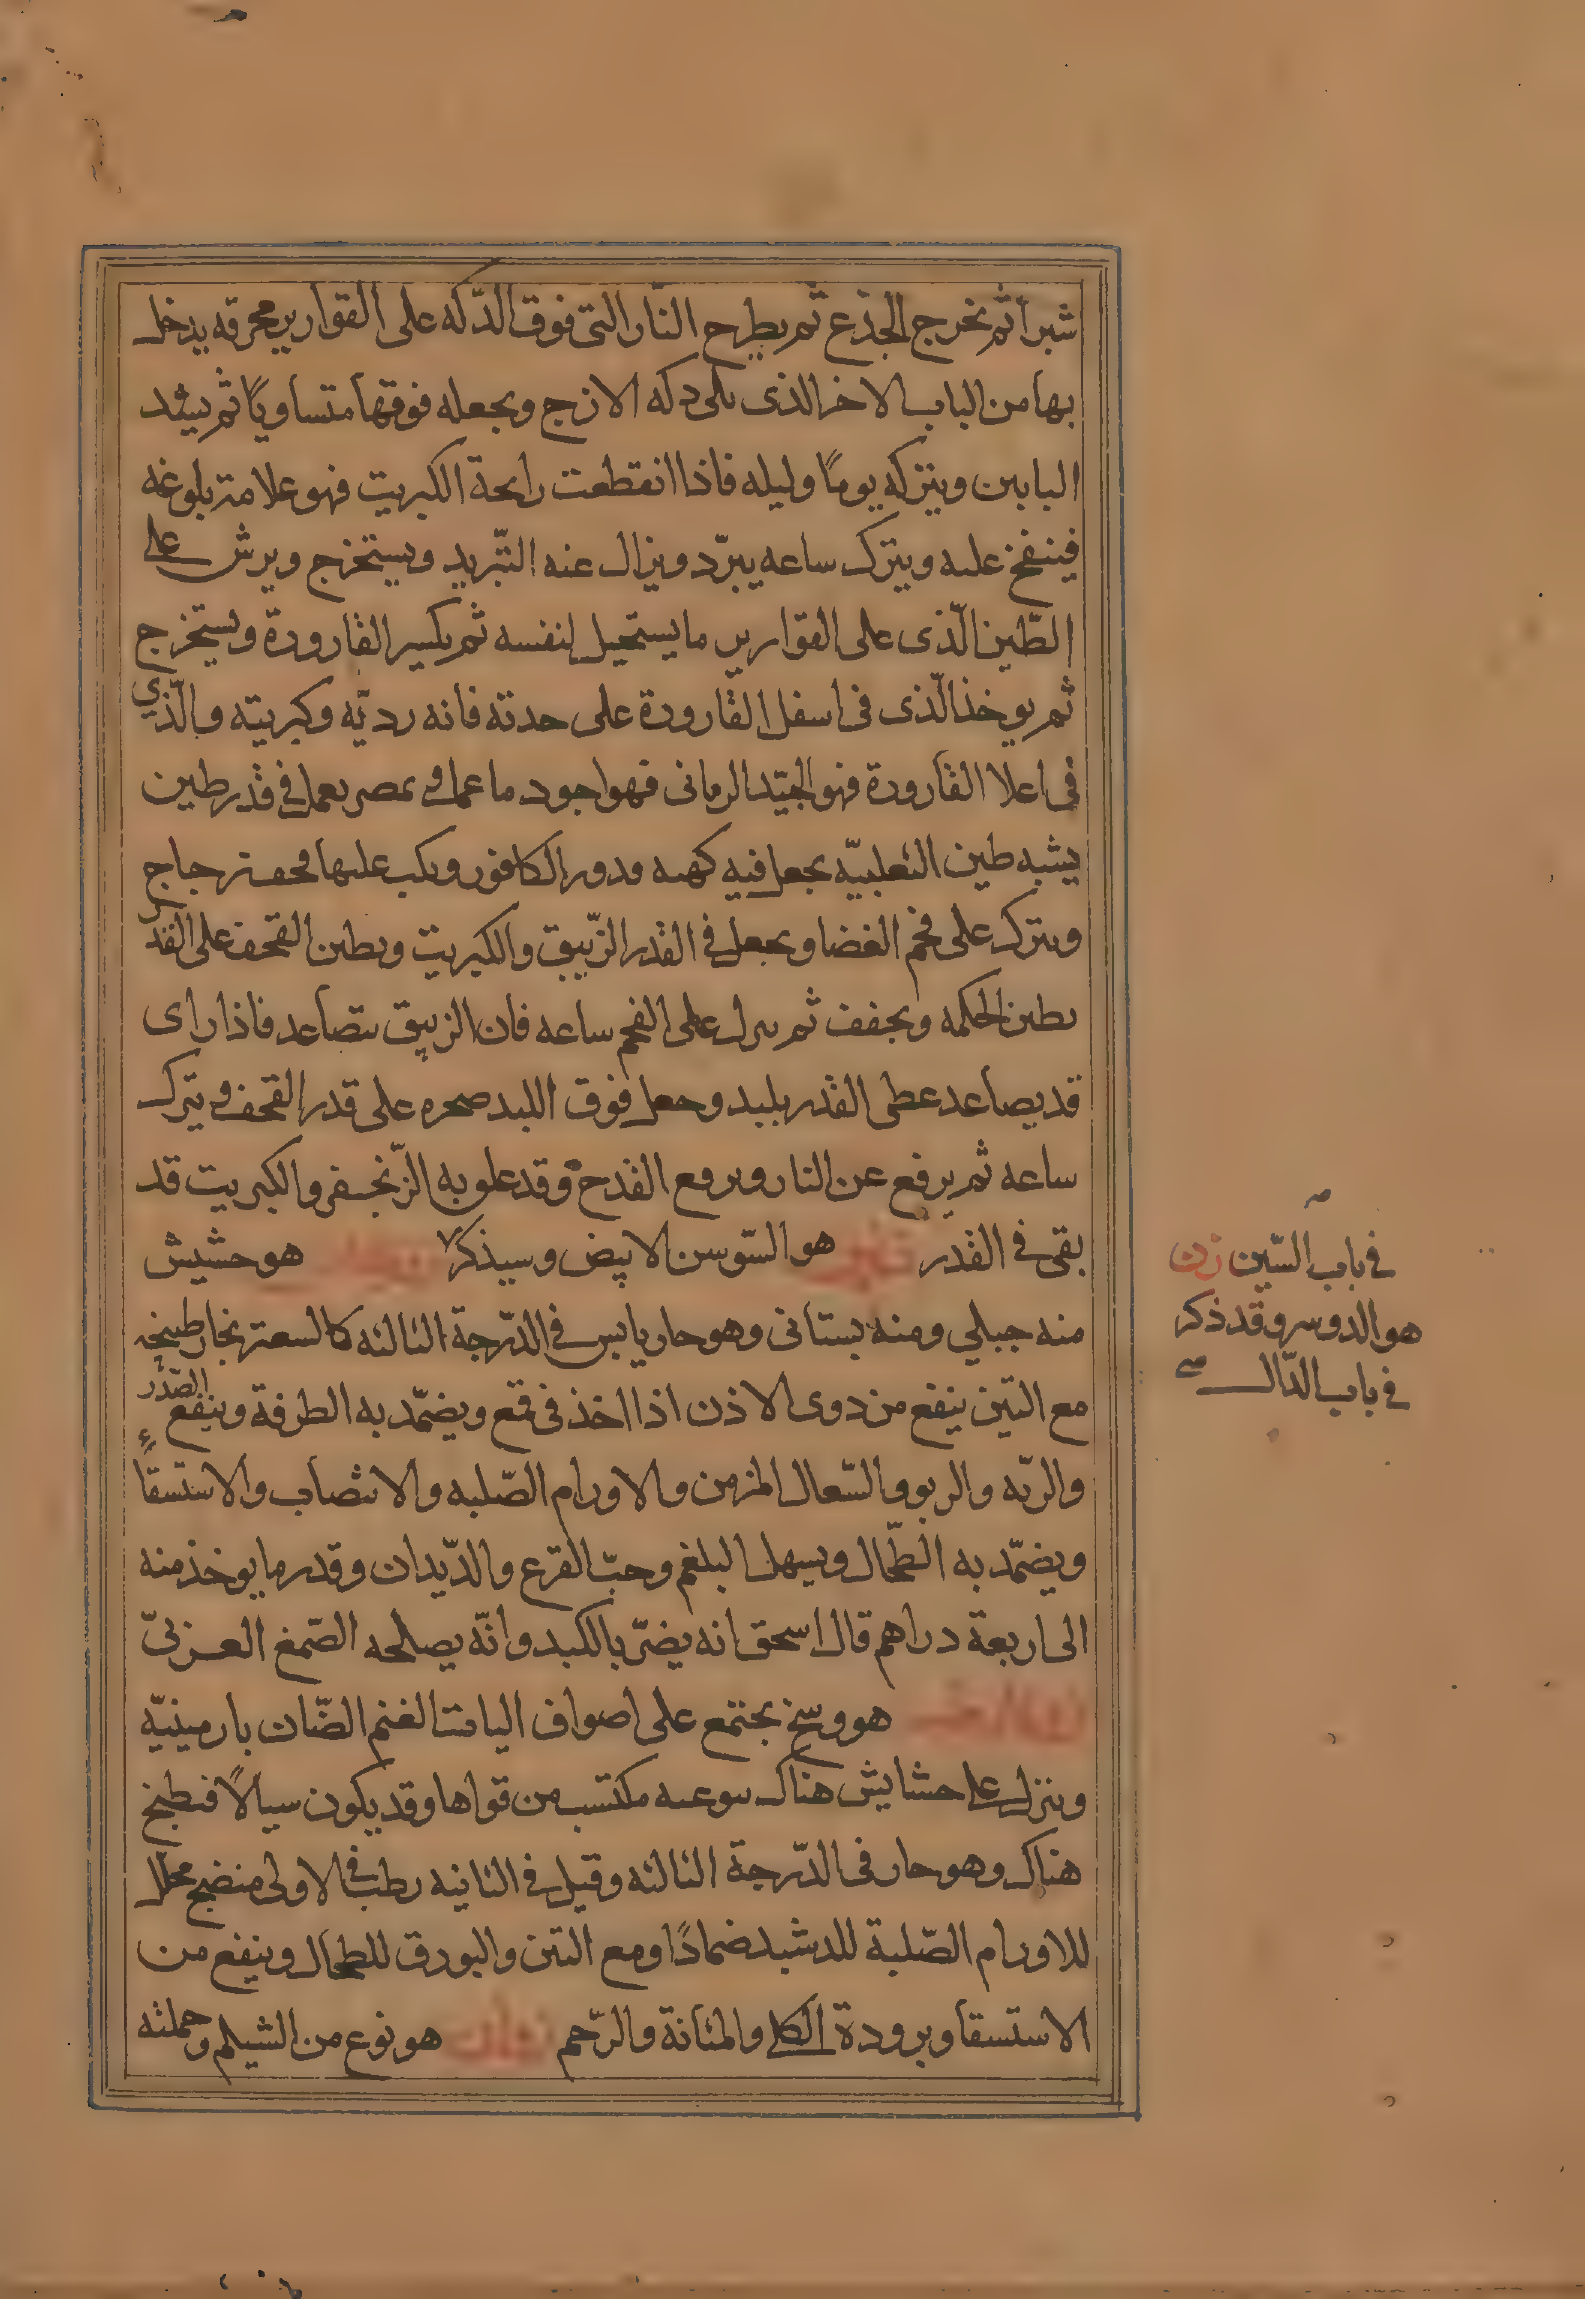 شبرا ثم يخرج الجذع ثم يطرح النار التى فوق الدكه على القوارير محرقه يدخل
بها من الباب الاخر الذى يلى دكه الازج ويجعله فوقها متساويًا ثم يشد
البابين ويتركه يومًا وليله فاذا انقطعت رايحة الكبريت فهو علامة بلوغه
فينفخ عليه ويترك ساعه يبرّد ويزال عنه التبريد ويستخرج ويرش على
الطّين الّذى على القوارير ما يستحيل لنفسه ثم يكسر القارورة ويستخرج
ثم يوخذ الّذى فى اسفل القارورة على حدته فانه رديّه وكبريته والّذي
فى اعلا القارورة فهو الجيّد الرمانى فهو اجود ما عمل وفى بمصر يعمل فى قدر طين
يشبه طين الثعلبيّه يجعل فيه كهيه قدور الكافور ويكب عليها قحف زجاج
ويترك على فحم الغضا ويجعل فى القدر الزّيبق والكبريت ويطين القحف على القدر
بطين الحكمه ويجفف ثم يترك على الفحم ساعه فان الزيبق يتصاعد فاذا راى
قد يصاعد غطى القدر بلبد وجعل فوق اللبد صخره على قدر القحف ويترك
ساعه ثم يرفع عن النار ويرفع القدح وقد علو به الزّنجفر والكبريت قد
بقى فى القدر هو السّوسن الابيض وسيذكر هو حشيش
منه جبلي ومنه بستانى وهو حار يابس فى الدّرجة الثالثه كالسعتر بخار طبيخه
مع التين ينفع من دوى الاذن اذا اخذ فى قمع ويضمّد به الطرفة وينفع الصّدر
والريّه والربو والسّعال المزمن والاورام الصّلبه والانتصاب والاستسقاء
ويضمّد به الطّحال ويسهل البلغم وحبّ القرع والدّيدان وقدر ما يوخذ منه
الى اربعة دراهم قال اسحق انه يضرّ بالكبد وانّه يصلحه الصّمغ العربىّ
هو وسخ يجتمع على اصواف اليات الغنم الضّان بارمينيّه
وينزل على حشايش هناك يتوعيه مكتسب من قواها وقد يكون سيالًا فيطبخ
هناك وهو حار فى الدّرجة الثالثه وقيل فى الثانيه رطب فى الاولى منضج محلل
للاورام الصّلبة للدشبد ضمادًا ومع التين والبورق للطحال وينفع من
الاستسقا وبرودة الكلى والمثانة والرّحم هو نوع من الشيلم وحملته
في باب السّين زن
هو الدوسر وقد ذكر
في باب الدّال